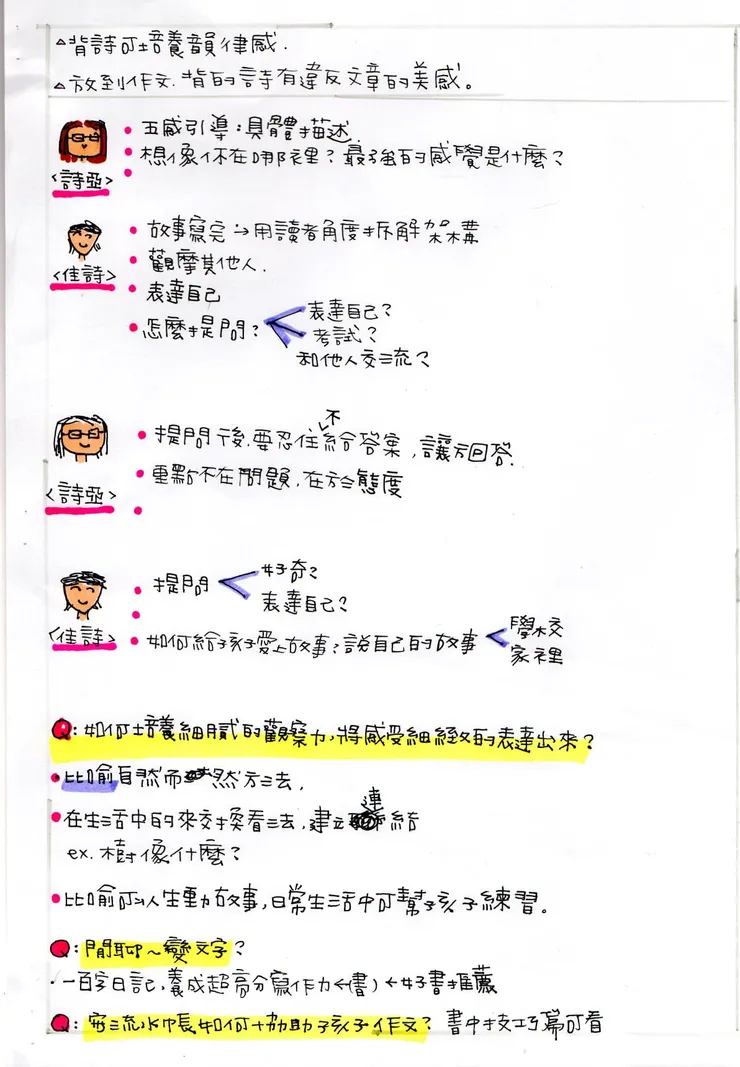 △背詩可培養韻律感.
△放到作文.背的詩有違反文章的美感。
• 五感引導:具體描述.
• 想像你在哪裡?最強的感覺是什麼?
<詩亞>
• 故事寫完→用讀者角度拆解架構
• 觀摩其他人.
<佳詩>
• 表達自己
• 怎麼提問? 表達自己?
考試?
和他人交流?
• 提問後.要忍住不給答案,讓方回答.
• 重點不在問題,在於態度
<詩亞>
• 提問 好奇?
表達自己?
<佳詩>
• 如何給孩子愛上故事?說自己的故事 學校
家裡
Q:如何培養細膩的觀察力,將感受細緻的表達出來?
• 比喻自然而然方法,
• 在生活中的來交換看法,建立連結
ex.樹像什麼?
• 比喻可以人生動故事,日常生活中可幫孩子練習。
Q:閒聊~變文字?
·一百字日記,養成超高分寫作力←(書)←好書推薦
Q:寫流水帳如何協助孩子作文?書中技巧篇可看